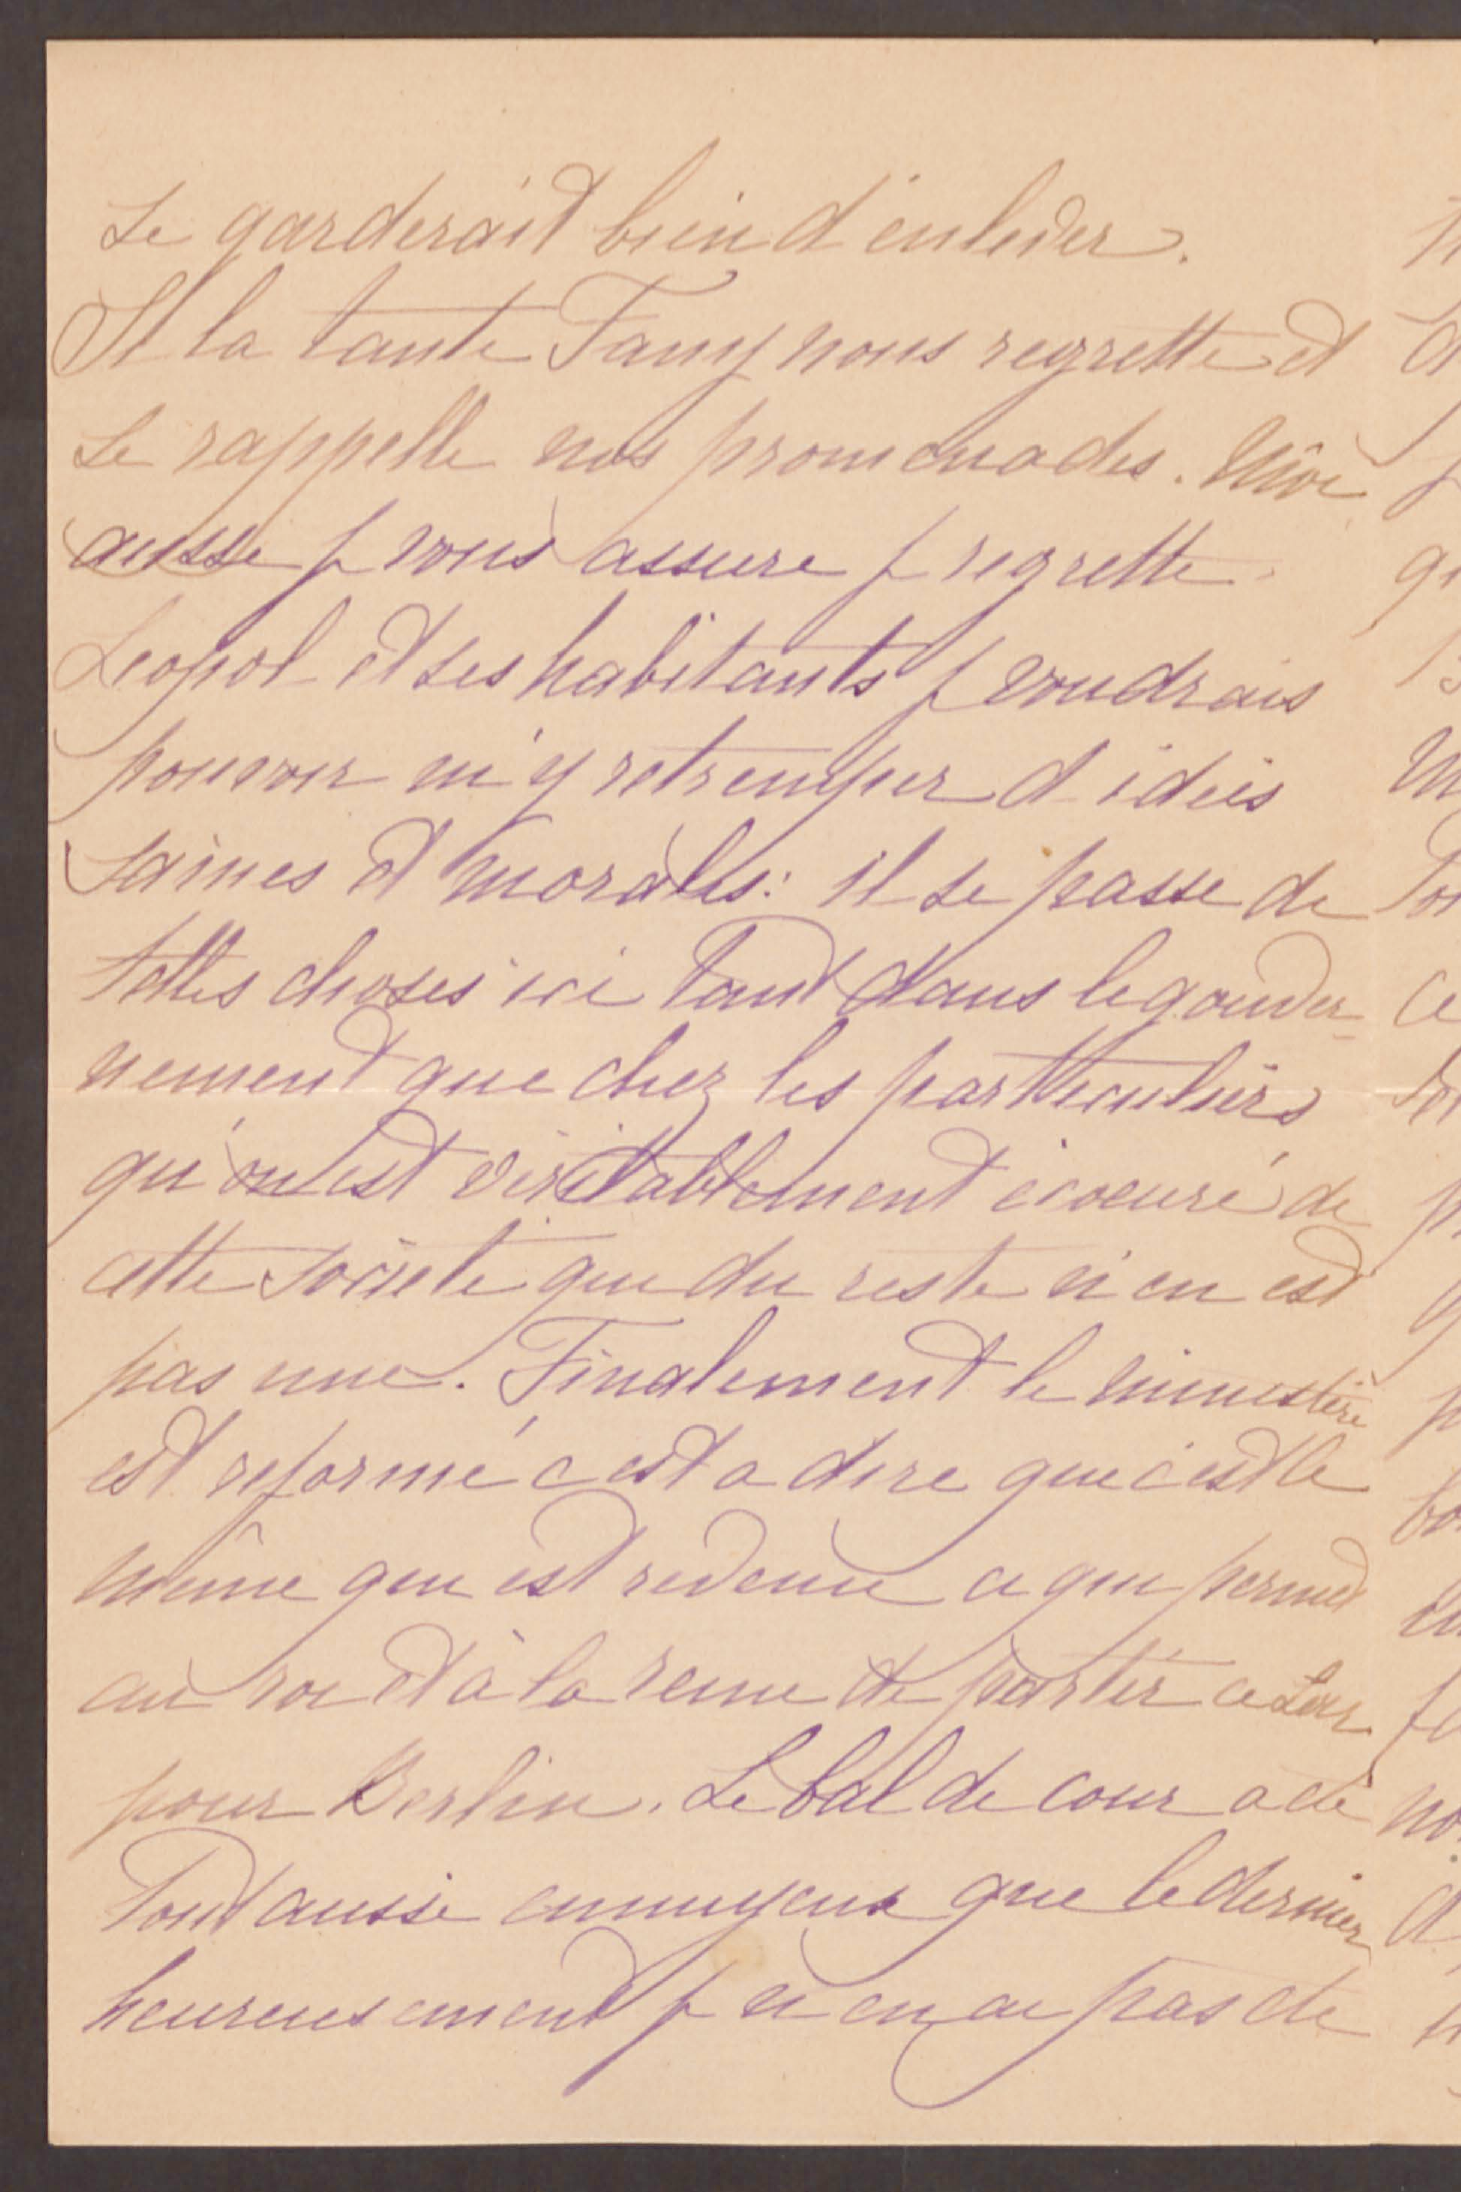 se garderait bien d'enlever.
Et la tante Fany nous regrette et
se rappelle nos promenades. Moi
aussi je vous assure je regrette
Leopol et ses habitants je voudrais
pouvoir m'y retremper d'idées
saines et morales: il se passe de
telles choses ici tant dans le gouver-
nement que chez les particuliers
qu'on est véritablement écoeuré de
cette société que du reste n'en est
pas une. Finalement le ministère
est reformé c'est a dire que c'est le
même qui est revenu ce qui permet
au roi et à la reine de partir ce soir
pour Berlin. Le bal de cour a été
tout aussi ennuyeux que le dernier
heureusement je n'en ai pas de